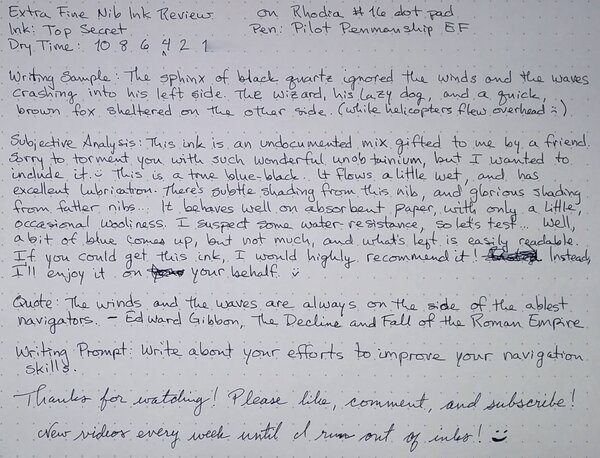 Extra Fine Nib Ink Review on Rhodia #16 dot pad
Ink: Top Secret Pen: Pilot Penmanship EF
Dry Time: 10 8 6 4 2 1
Writing Sample: The sphinx of black quartz ignored the winds and the waves
crashing into his left side. The wizard, his lazy dog, and a quick,
brown fox sheltered on the other side. (while helicopters flew overhead :).)
Subjective Analysis: This ink is an undocumented mix gifted to me by a friend.
Sorry to torment you with such wonderful unobtainium, but I wanted to
include it. :) This is a true blue-black. It flows a little wet, and has
excellent lubrication. There's subtle shading from this nib, and glorious shading
from fatter nibs... It behaves well on absorbent paper, with only a little,
occasional wooliness. I suspect some water-resistance, so let's test... Well,
a bit of blue comes up, but not much, and what's left is easily readable.
If you could get this ink, I would highly recommend it! Instead,
I'll enjoy it on your behalf. :)
Quote: The winds and the waves are always on the side of the ablest
navigators. - Edward Gibbon, The Decline and Fall of the Roman Empire
Writing Prompt: Write about your efforts to improve your navigation
skills.
Thanks for watching! Please like, comment, and subscribe!
New videos every week until I run out of inks! :)